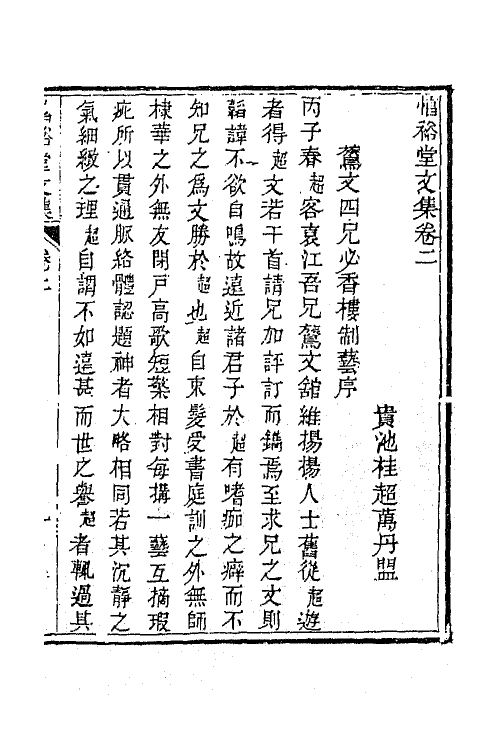 惇裕堂文集卷二
貴池桂超萬丹盟
鷟文四兄必香樓制藝序
丙子春超客袁江吾兄鷟文舘維揚揚人士舊從超遊
者得超文若干首請兄加評訂而鐫焉至求兄之文則
韜諱不欲自鳴故遠近諸君子於超有嗜痂之癖而不
知兄之爲文勝於超也超自束髮受書庭訓之外無師
棣華之外無友閉戶高歌短檠相對每搆一藝互摘瑕
疵所以貫通脈絡體認題神者大略相同若其沉靜之
氣細緻之理超自謂不如遠甚而世之譽超者輒過其